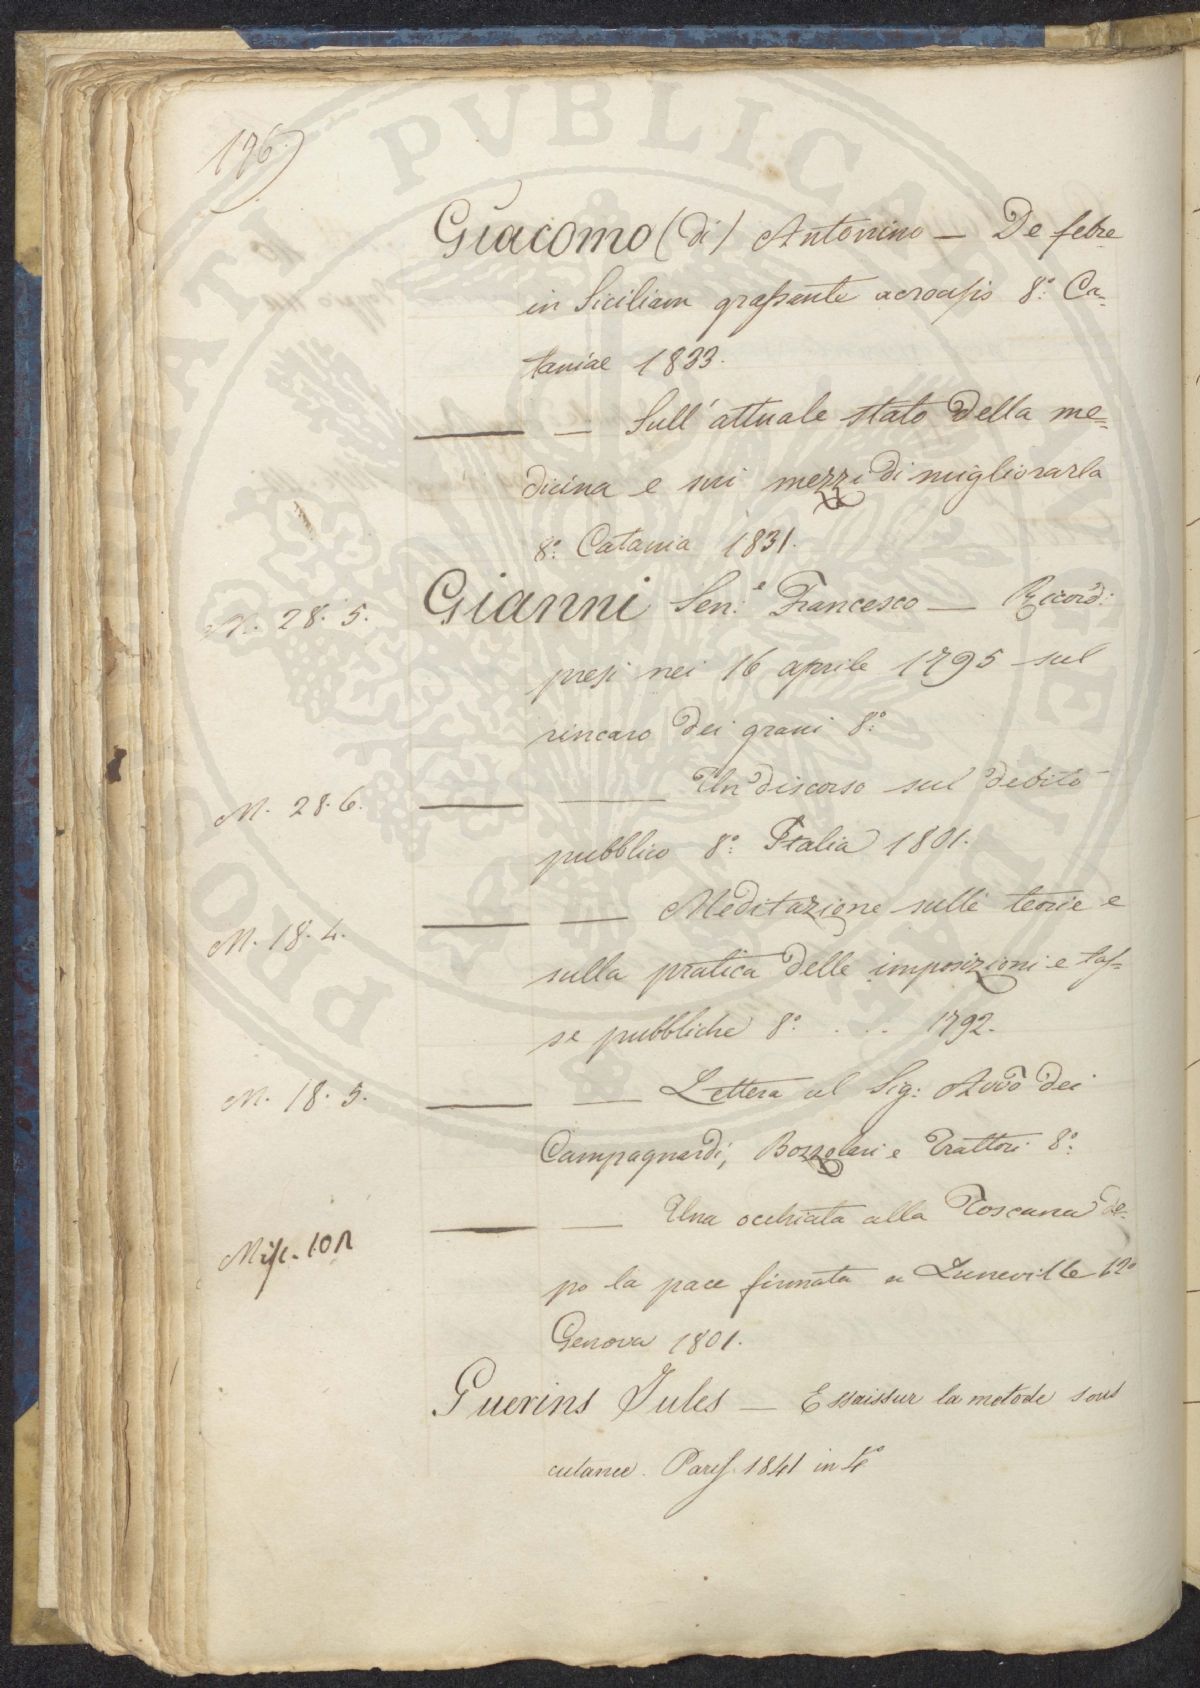 176)
Giacomo (di) Antonino — De febre
in Siciliam grassante acroasis 8.° Ca-
taniae 1833.
— Sull'attuale stato della me=
dicina e sui mezzi di migliorarla
8.° Catania 1831.
M. 28. 5. Gianni Sen.e Francesco — Ricord:
presi nei 16 aprile 1795 sul
rincaro dei grani 8.°
M. 28. 6. — Un discorso sul debito
pubblico 8.° Italia 1801.
M. 18. 4. — Meditazione sulle teorie e
sulla pratica delle imposizioni e tas=
se pubbliche 8.° . . . 1792.
M. 18. 5. — Lettera al Sig: Avvo dei
Campagnardi, Bozzolari e Trattori 8.°
Misc. 101 — Una occhiata alla Toscana do-
po la pace firmata a Luneville 12°
Genova 1801.
Guerins Jules — Essaissur la metode sous
cutanee. Paris. 1841 in 4°
PROBATI PVBLICAE